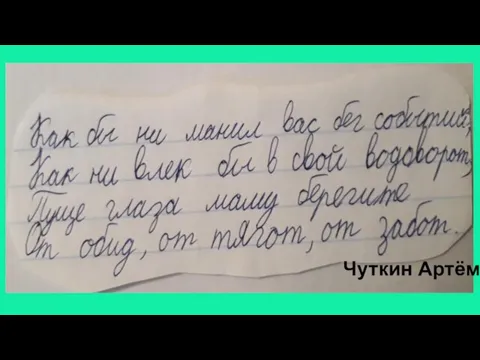 Как бы ни манил вас бег событий,
Как ни влек бы в свой водоворот,
Пуще глаза маму берегите
От обид, от тягот, от забот.
Чуткин Артём